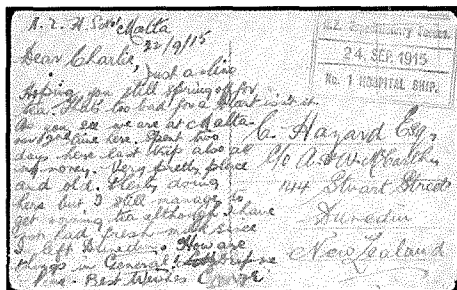 N.Z. H.S. No 1 Malta
22/9/15
Dear Charlie,
Just a line
Hoping you still spring off for
tea. That's too bad for a start isn't it.
As you see we are at Malta
our 2nd time here. Spent two
days here last trip also all
my money. Very pretty place
and old. Plenty doing
here but I still manage to
get spring tea although I have
not had fresh milk since
I left Dunedin. How are
things in General
Best Wishes George
N.Z. Expeditionary Forces.
24 SEP. 1915
No. 1 HOSPITAL SHIP.
C. Hazard Esq,
C/o A. & W. McCarthy
144 Stuart Street
Dunedin
New Zealand